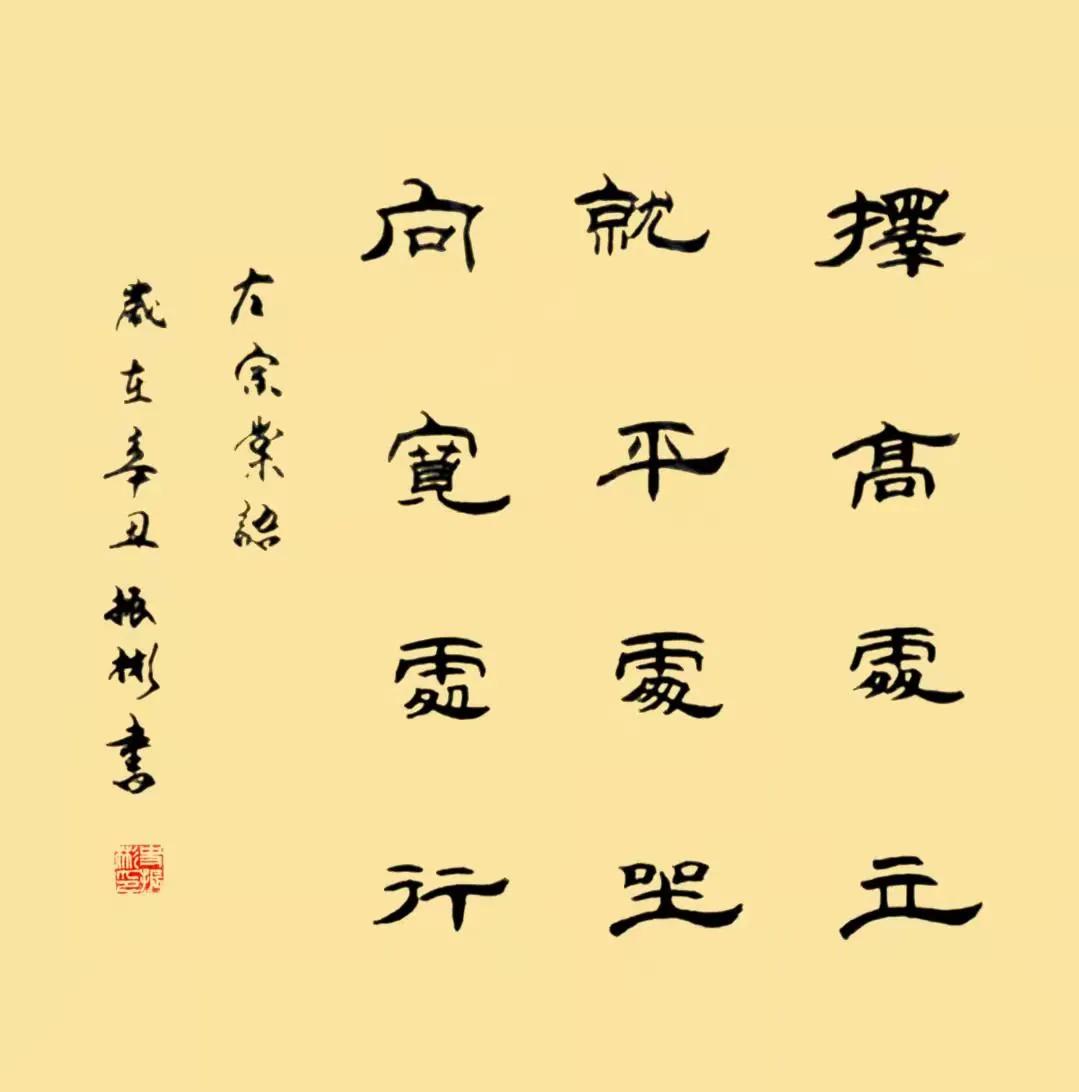 擇高處立
就平處坐
向寬處行
左宗棠語
歲在辛丑振彬書